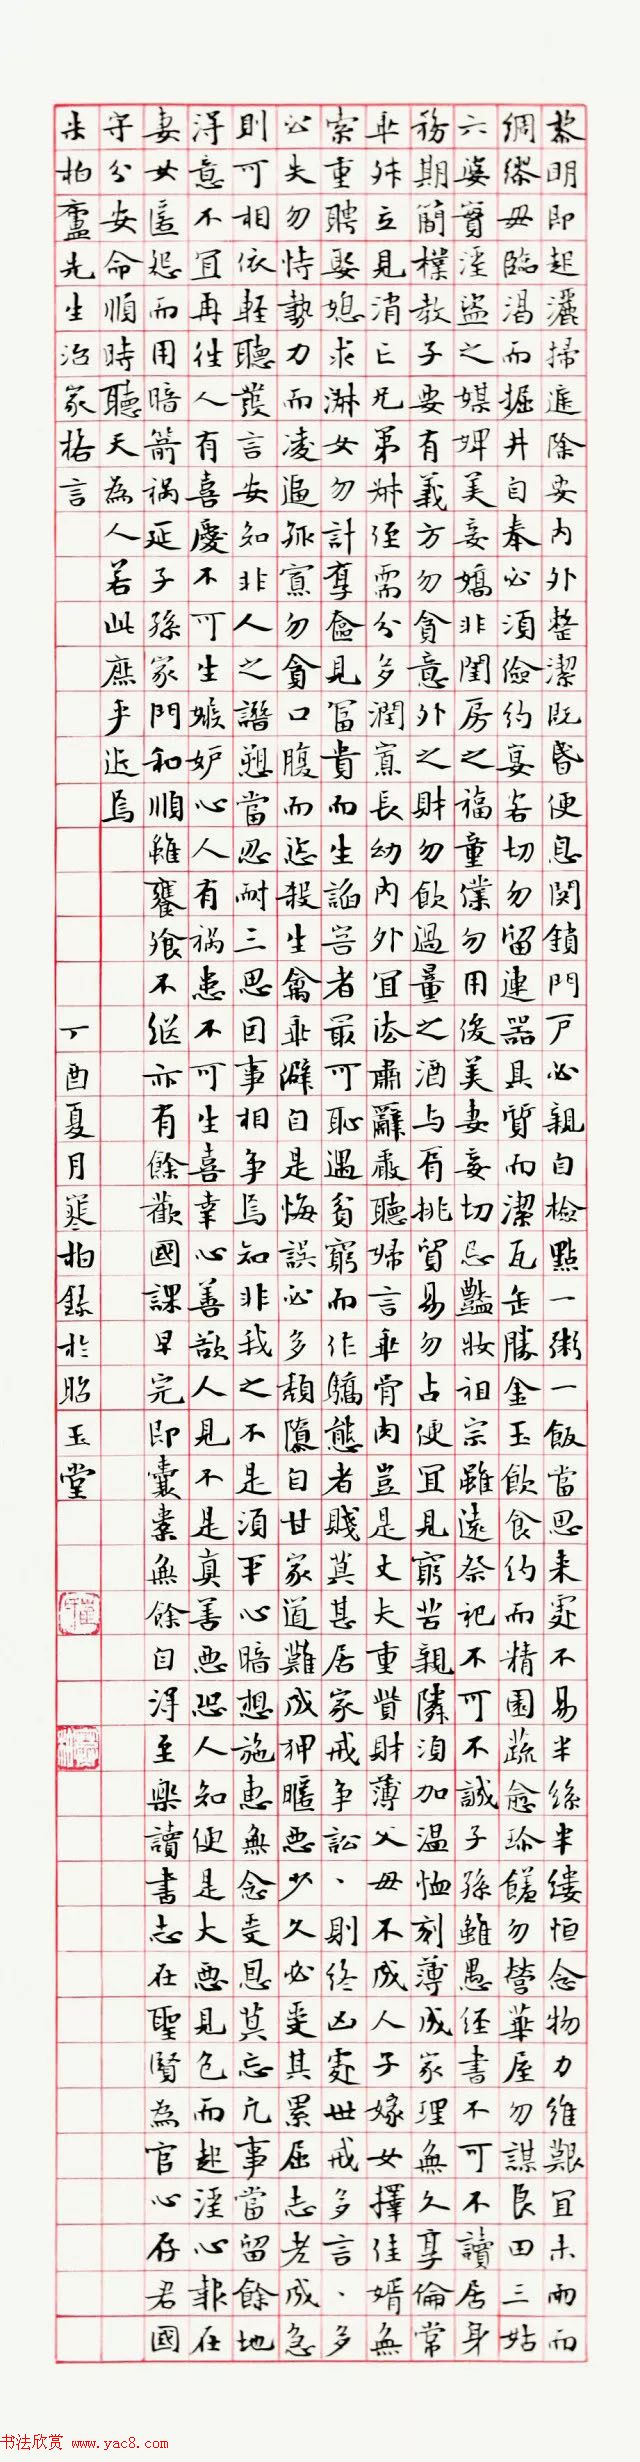 黎明即起灑掃庭除要内外整潔既昏便息関鎖門戶必親自檢點一粥一飯當思来處不易半絲半縷恒念物力維艱宜未雨而
綢繆毋臨渴而掘井自奉必須儉約宴客切勿留連器具質而潔瓦缶勝金玉飲食約而精園蔬愈珍饈勿營華屋勿謀良田三姑
六婆實淫盜之媒婢美妾嬌非閨房之福童僕勿用俊美妻妾切忌豔妝祖宗雖遠祭祀不可不誠子孫雖愚經書不可不讀居身
務期簡樸教子要有義方勿貪意外之財勿飲過量之酒与肩挑貿易勿占便宜見窮苦親隣須加温恤刻薄成家理無久享倫常
乖舛立見消亡兄弟叔侄需分多潤寡長幼内外宜法肅辭嚴聽婦言乖骨肉豈是丈夫重貲財薄父毋不成人子嫁女擇佳婿無
索重聘娶媳求淑女勿計厚奩見冨貴而生諂容者最可恥遇貧窮而作驕態者賤莫甚居家戒争訟、則終凶處世戒多言、多
必失勿恃勢力而凌逼孤寡勿貪口腹而恣殺生禽乖僻自是悔誤必多頹隳自甘家道難成狎暱惡少久必受其累屈志老成急
則可相依輕聽發言安知非人之譖愬當忍耐三思因事相争焉知非我之不是須平心暗想施惠無念受恩莫忘凡事當留餘地
得意不宜再往人有喜慶不可生嫉妒心人有禍患不可生喜幸心善欲人見不是真善惡恐人知便是大惡見色而起淫心報在
妻女匿怨而用暗箭禍延子孫家門和順雖饔飧不継亦有餘歡國課早完即囊橐無餘自得至樂讀書志在聖賢為官心存君國
守分安命順時聽天為人若此庶乎近焉
朱柏廬先生治家格言 丁酉夏月寒柏錄於昭玉堂
书法欣赏 www.yac8.com